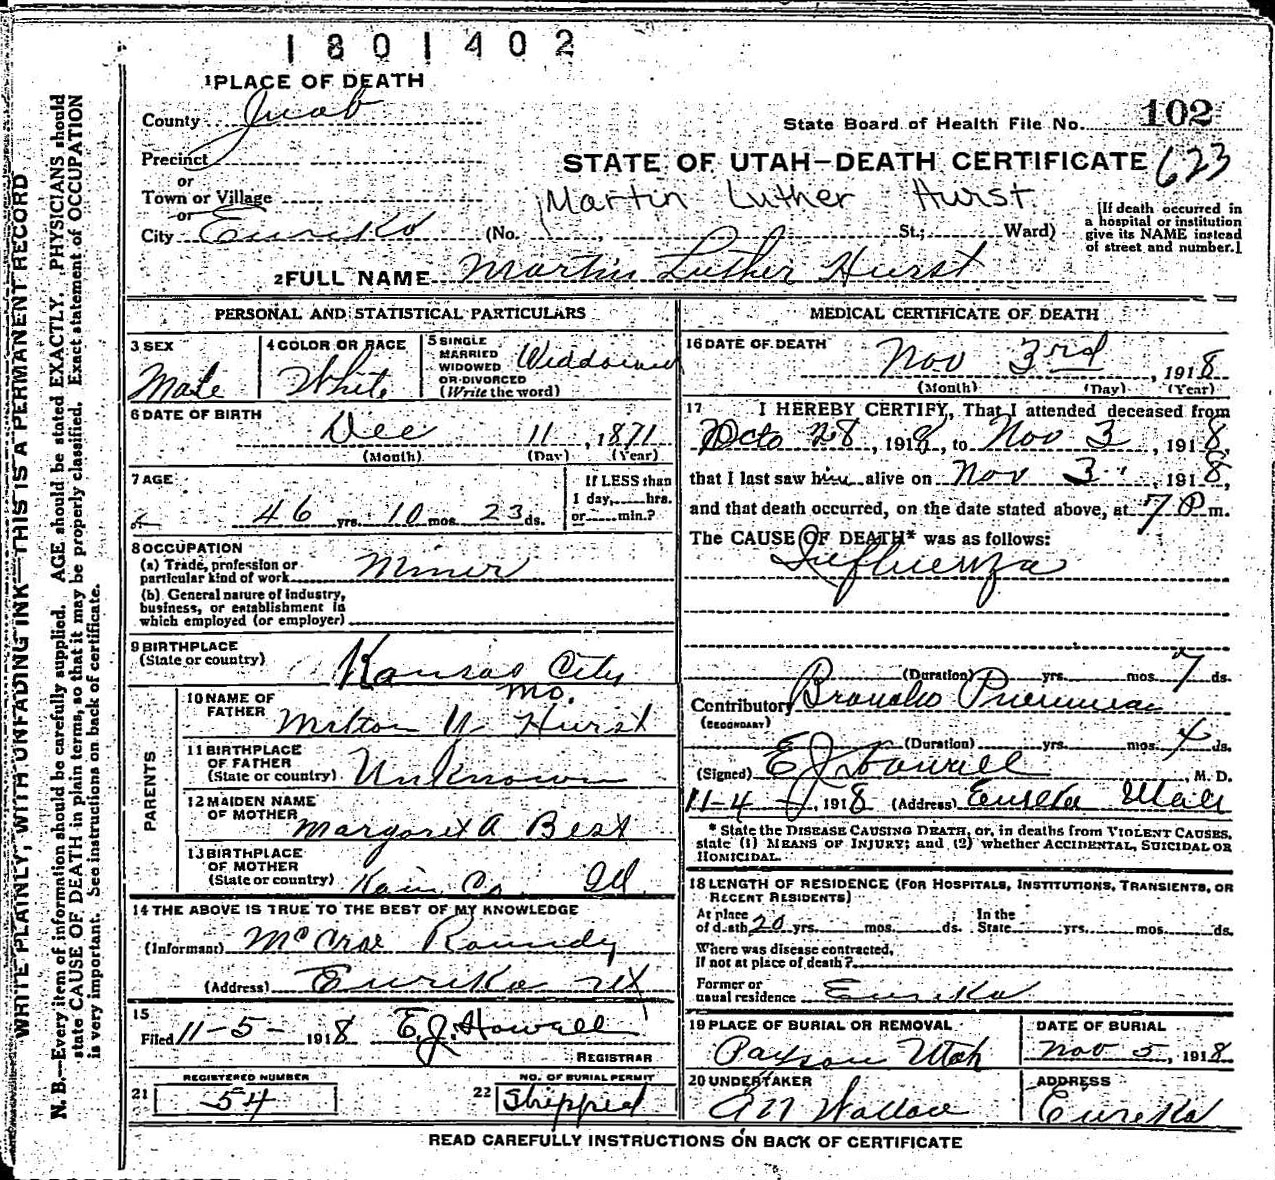 1801402
1 PLACE OF DEATH
County Juab
102
State Board of Health File No.
Precinct
STATE OF UTAH—DEATH CERTIFICATE 623
or
Town or Village
Martin Luther Hurst
or
City Eureka (No. St.; Ward)
[If death occurred in a hospital or institution give its NAME instead of street and number.]
2 FULL NAME Martin Luther Hurst
PERSONAL AND STATISTICAL PARTICULARS
3 SEX Male
4 COLOR OR RACE White
5 SINGLE MARRIED WIDOWED OR DIVORCED (Write the word) Widdower
6 DATE OF BIRTH
Dec 11, 1871
(Month) (Day) (Year)
7 AGE
46 yrs. 10 mos. 23 ds.
If LESS than 1 day, hrs. or min.?
8 OCCUPATION
(a) Trade, profession or particular kind of work Miner
(b) General nature of industry, business, or establishment in which employed (or employer)
9 BIRTHPLACE
(State or country) Kansas City Mo.
PARENTS
10 NAME OF FATHER Milton N Hurst
11 BIRTHPLACE OF FATHER (State or country) Unknown
12 MAIDEN NAME OF MOTHER Margaret A Best
13 BIRTHPLACE OF MOTHER (State or country) Kain Co. Ill.
14 THE ABOVE IS TRUE TO THE BEST OF MY KNOWLEDGE
(Informant) McCroe Roundy
(Address) Eureka Ut
15
Filed 11-5-1918 E.J. Howell
REGISTRAR
REGISTERED NUMBER
21 54
NO. OF BURIAL PERMIT
22 Shipped
MEDICAL CERTIFICATE OF DEATH
16 DATE OF DEATH
Nov 3rd, 1918
(Month) (Day) (Year)
17 I HEREBY CERTIFY, That I attended deceased from
Octo 28, 1918, to Nov 3, 1918,
that I last saw him alive on Nov 3, 1918,
and that death occurred, on the date stated above, at 7 P m.
The CAUSE OF DEATH* was as follows:
Influenza
(Duration) yrs. mos. 7 ds.
Contributory Broncho Pneumonia
(SECONDARY)
(Duration) yrs. mos. 4 ds.
(Signed) E J Howell, M. D.
11-4-, 1918 (Address) Eureka Utah
* State the DISEASE CAUSING DEATH, or, in deaths from VIOLENT CAUSES,
state (1) MEANS OF INJURY; and (2) whether ACCIDENTAL, SUICIDAL OR
HOMICIDAL.
18 LENGTH OF RESIDENCE (FOR HOSPITALS, INSTITUTIONS, TRANSIENTS, OR
RECENT RESIDENTS)
At place of death 20 yrs. mos. ds. In the State yrs. mos. ds.
Where was disease contracted,
If not at place of death?
Former or usual residence Eureka
19 PLACE OF BURIAL OR REMOVAL
Payson Utah
DATE OF BURIAL
Nov 5, 1918
20 UNDERTAKER
A N Wallace
ADDRESS
Eureka
READ CAREFULLY INSTRUCTIONS ON BACK OF CERTIFICATE
WRITE PLAINLY, WITH UNFADING INK—THIS IS A PERMANENT RECORD
N. B.—Every item of information should be carefully supplied. AGE should be stated EXACTLY. PHYSICIANS should
state CAUSE OF DEATH in plain terms, so that it may be properly classified. Exact statement of OCCUPATION
is very important. See instructions on back of certificate.